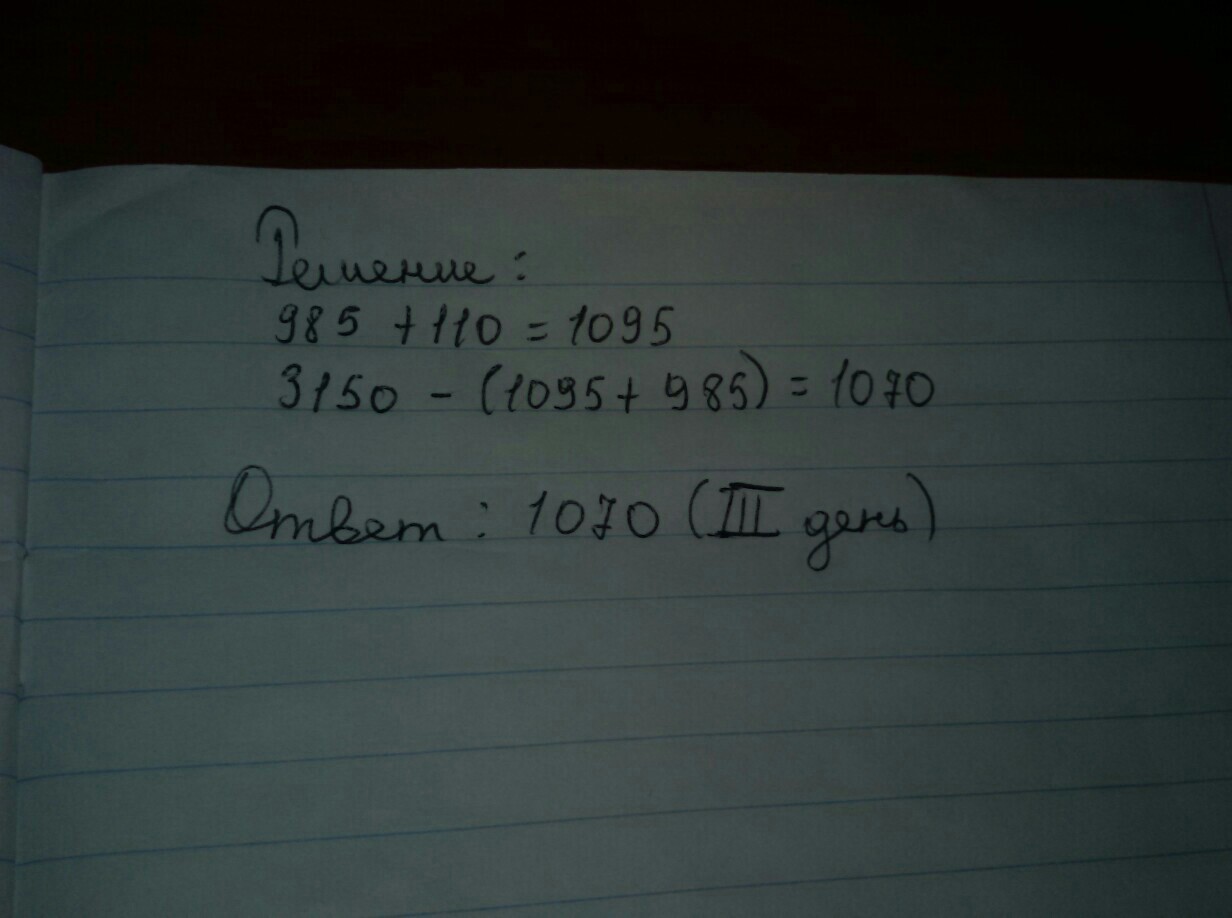 Решение:
985 + 110 = 1095
3150 - (1095 + 985) = 1070
Ответ: 1070 (III день)